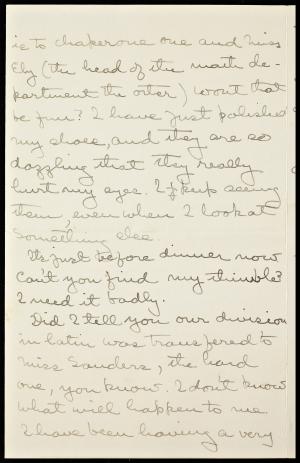 is to chaperone one and Miss
Ely (the head of the math de-
partment the other) wont that
be fun? I have just polished
my shoes, and they are so
dazzling that they really
hurt my eyes. I keep seeing
them, even when I look at
something else.
Its just before dinner now
Can't you find my thimble?
I need it badly.
Did I tell you our division
in latin was transfered to
Miss Sanders, the hard
one, you know. I don't know
what will happen to me
I have been having a very